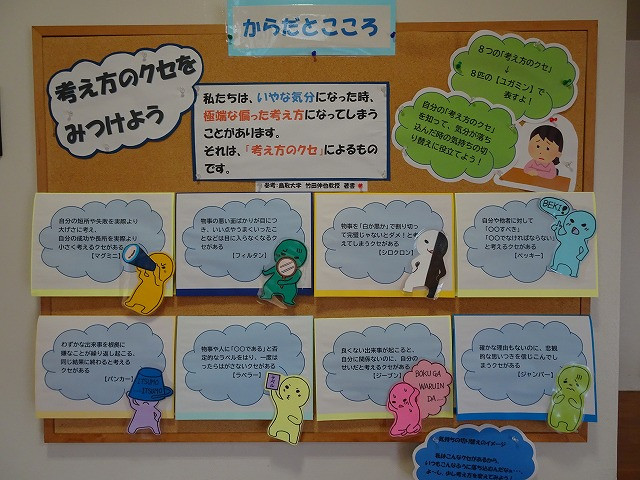 からだとこころ
考え方のクセを
みつけよう
私たちは、いやな気分になった時、
極端な偏った考え方になってしまう
ことがあります。
それは、「考え方のクセ」によるもの
です。
参考:鳥取大学 竹田伸也教授 著書
8つの「考え方のクセ」
↓
8匹の【ユガミン】で
表すよ!
自分の「考え方のクセ」
を知って、気分が落ち
込んだ時の気持ちの切
り替えに役立てよう!
自分の短所や失敗を実際より
大げさに考え、
自分の成功や長所を実際より
小さく考えるクセがある
【マグミニ】
物事の悪い面ばかりが目につ
き、いい点やうまくいったこ
となどは目に入らなくなるクセ
がある
【フィルタン】
物事を「白か黒か」で割り切っ
て完璧じゃないとダメ!と考
えてしまうクセがある
【シロクロン】
自分や他者に対して
「○○すべき」
「○○でなければならない」
と考えるクセがある
【ベッキー】
BEKI!
わずかな出来事を根拠に
嫌なことが繰り返し起こる、
同じ結果に終わると考える
クセがある
【パンカー】
ITSUMO
ITSUMO
物事や人に「○○である」と否
定的なラベルをはり、一度は
ったらはがさないクセがある
【ラベラー】
良くない出来事が起こると、
自分に関係ないのに、自分の
せいだと考えるクセがある
【ジーブン】
BOKU GA
WARUIN
DA...
確かな理由もないのに、悲観
的な思いつきを信じこんでし
まうクセがある
【ジャンパー】
気持ちの切り替えのイメージ